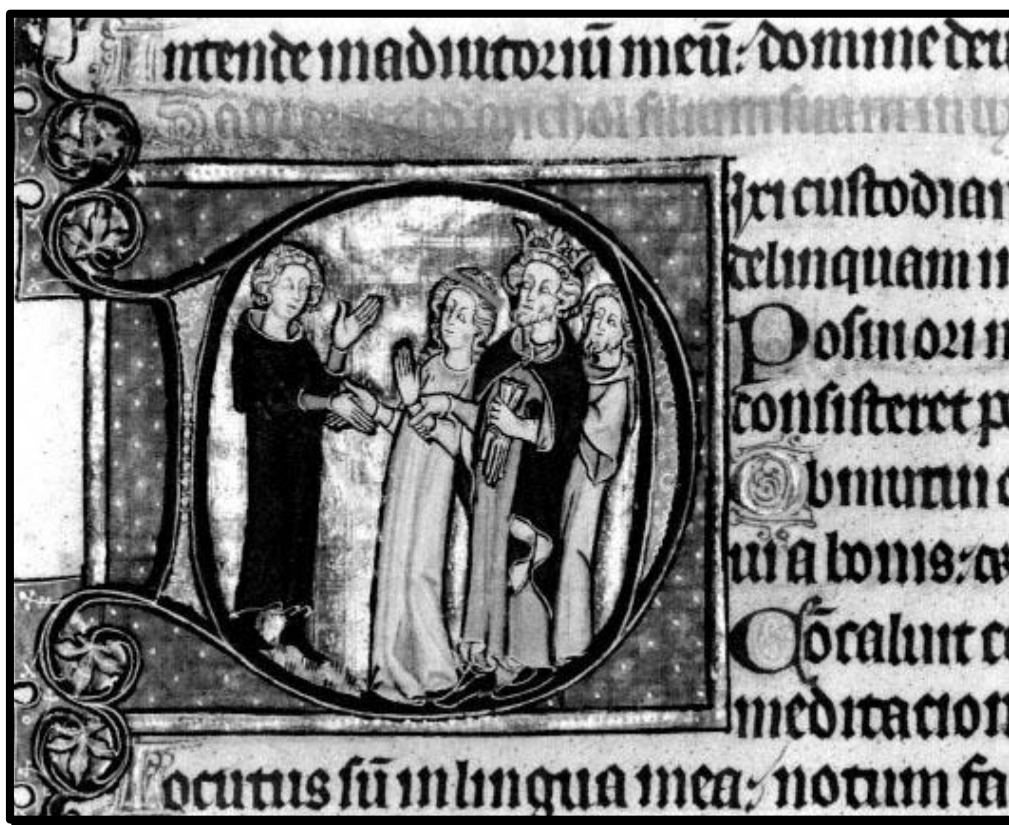 Intende in adiutoriū meū: domine deu
michol filiam suam in ux
DIxi custodiam
delinquam in
Posui ori m
consisteret p
Obmutui
ui a bonis: et
Cōcaluit c
meditacion
Locutus sū in lingua mea: notum fa